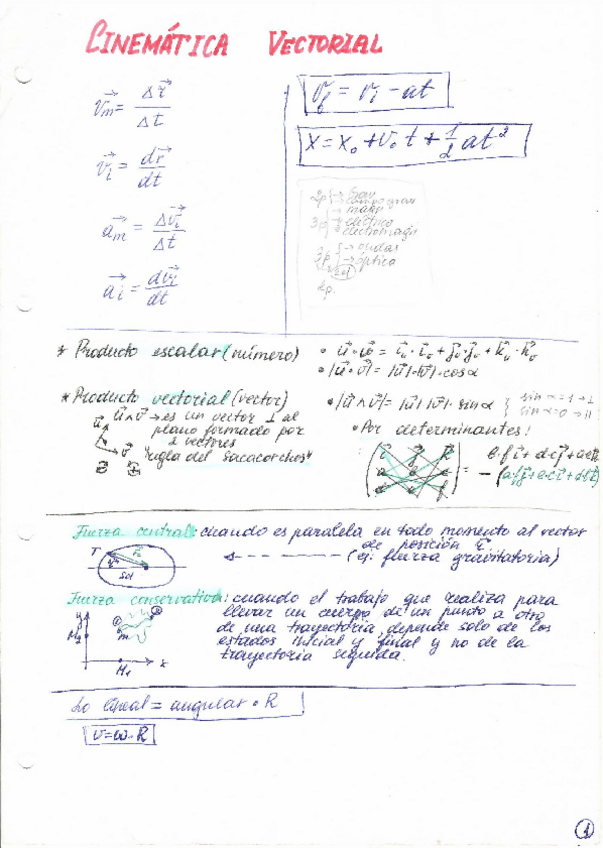 CINEMÁTICA VECTORIAL
v⃗m = Δr⃗/Δt
v⃗i = dr⃗/dt
a⃗m = Δv⃗i/Δt
a⃗i = dv⃗i/dt
Vf = Vi - at
X = X₀ + V₀ t + 1/2 at²
2p
campo grav
3p
magn
eléctrico
electromagn
3p
ondas
óptica
2p.
* Producto escalar (número)
• |u⃗·v⃗| = |u⃗|·|v⃗|·cos α
* Producto vectorial (vector)
u⃗∧v⃗ → es un vector ⊥ al
plano formado por
2 vectores
"regla del sacacorchos"
• |u⃗∧v⃗| = |u⃗|·|v⃗|·sin α } sin α = 1 → ⊥
sin α = 0 → ||
• Por determinantes:
Fuerza central: cuando es paralela en todo momento al vector
de posición r⃗
(ej: fuerza gravitatoria)
T
Sol
Fuerza conservativa: cuando el trabajo que realiza para
llevar un cuerpo de un punto a otro
de una trayectoria, depende solo de los
estados inicial y final y no de la
trayectoria seguida.
y
x
M₁
Lo lineal = angular • R
v = ω·R
1